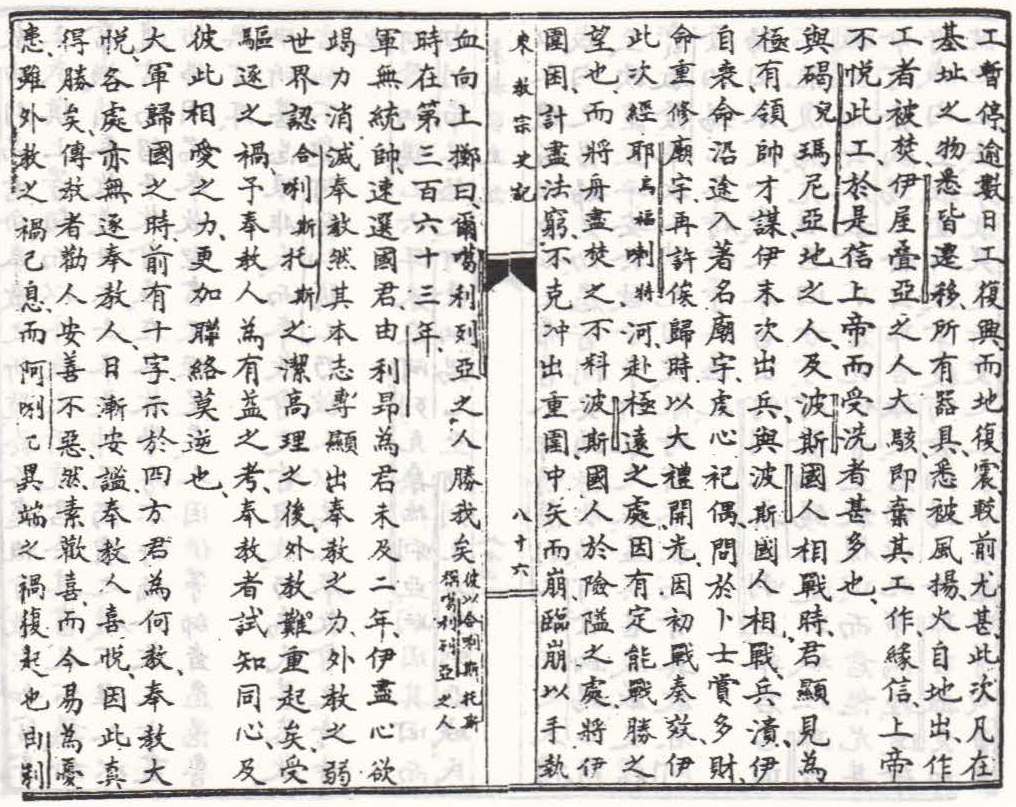 工暫停逾數日工復興而地復震較前尤甚此次凡在
基址之物悉皆遷移所有器具悉被風揚火自地出作
工者被焚伊屋疊亞之人大駭即棄其工作緣信上帝
不悅此工於是信上帝而受洗者甚多也
與碣兒瑪尼亞地之人及波斯國人相戰時君顯見為
極有領帥才謀伊末次出兵與波斯國人相戰兵潰伊
自衰命沿途入著名廟宇虔心祀偶問於卜士賞多財
命重修廟宇再許俟歸時以大禮開光因初戰奏效伊
此次經耶烏福唎將河赴極遠之處因有定能戰勝之
望也而將舟盡焚之不料波斯國人於險隘之處將伊
圍困計盡法窮不克冲出重圍中矢而崩臨崩以手執
東教宗史記 八十六
血向上擲曰爾噶利列亞之人勝我矣彼以合唎斯托斯稱噶利列亞之人
時在第三百六十三年
軍無統帥速選國君由利昂為君未及二年伊盡心欲
竭力消滅奉教然其本志專顯出奉教之力外教之弱
世界認合唎斯托斯之潔高理之後外教難重起矣受
驅逐之禍予奉教人為有益之考奉教者試知同心及
彼此相愛之力更加聯絡莫逆也
大軍歸國之時前有十字示於四方君為何教奉教大
悅各處亦無逐奉教人日漸安謐奉教人喜悅因此真
得勝矣傳教者勸人安善不惡然素歡喜而今易為憂
患雖外教之禍已息而阿唎乙異端之禍復起也即別